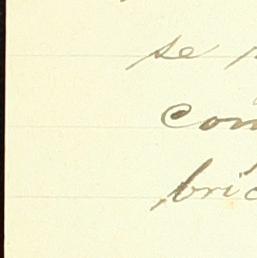 se
con
bric